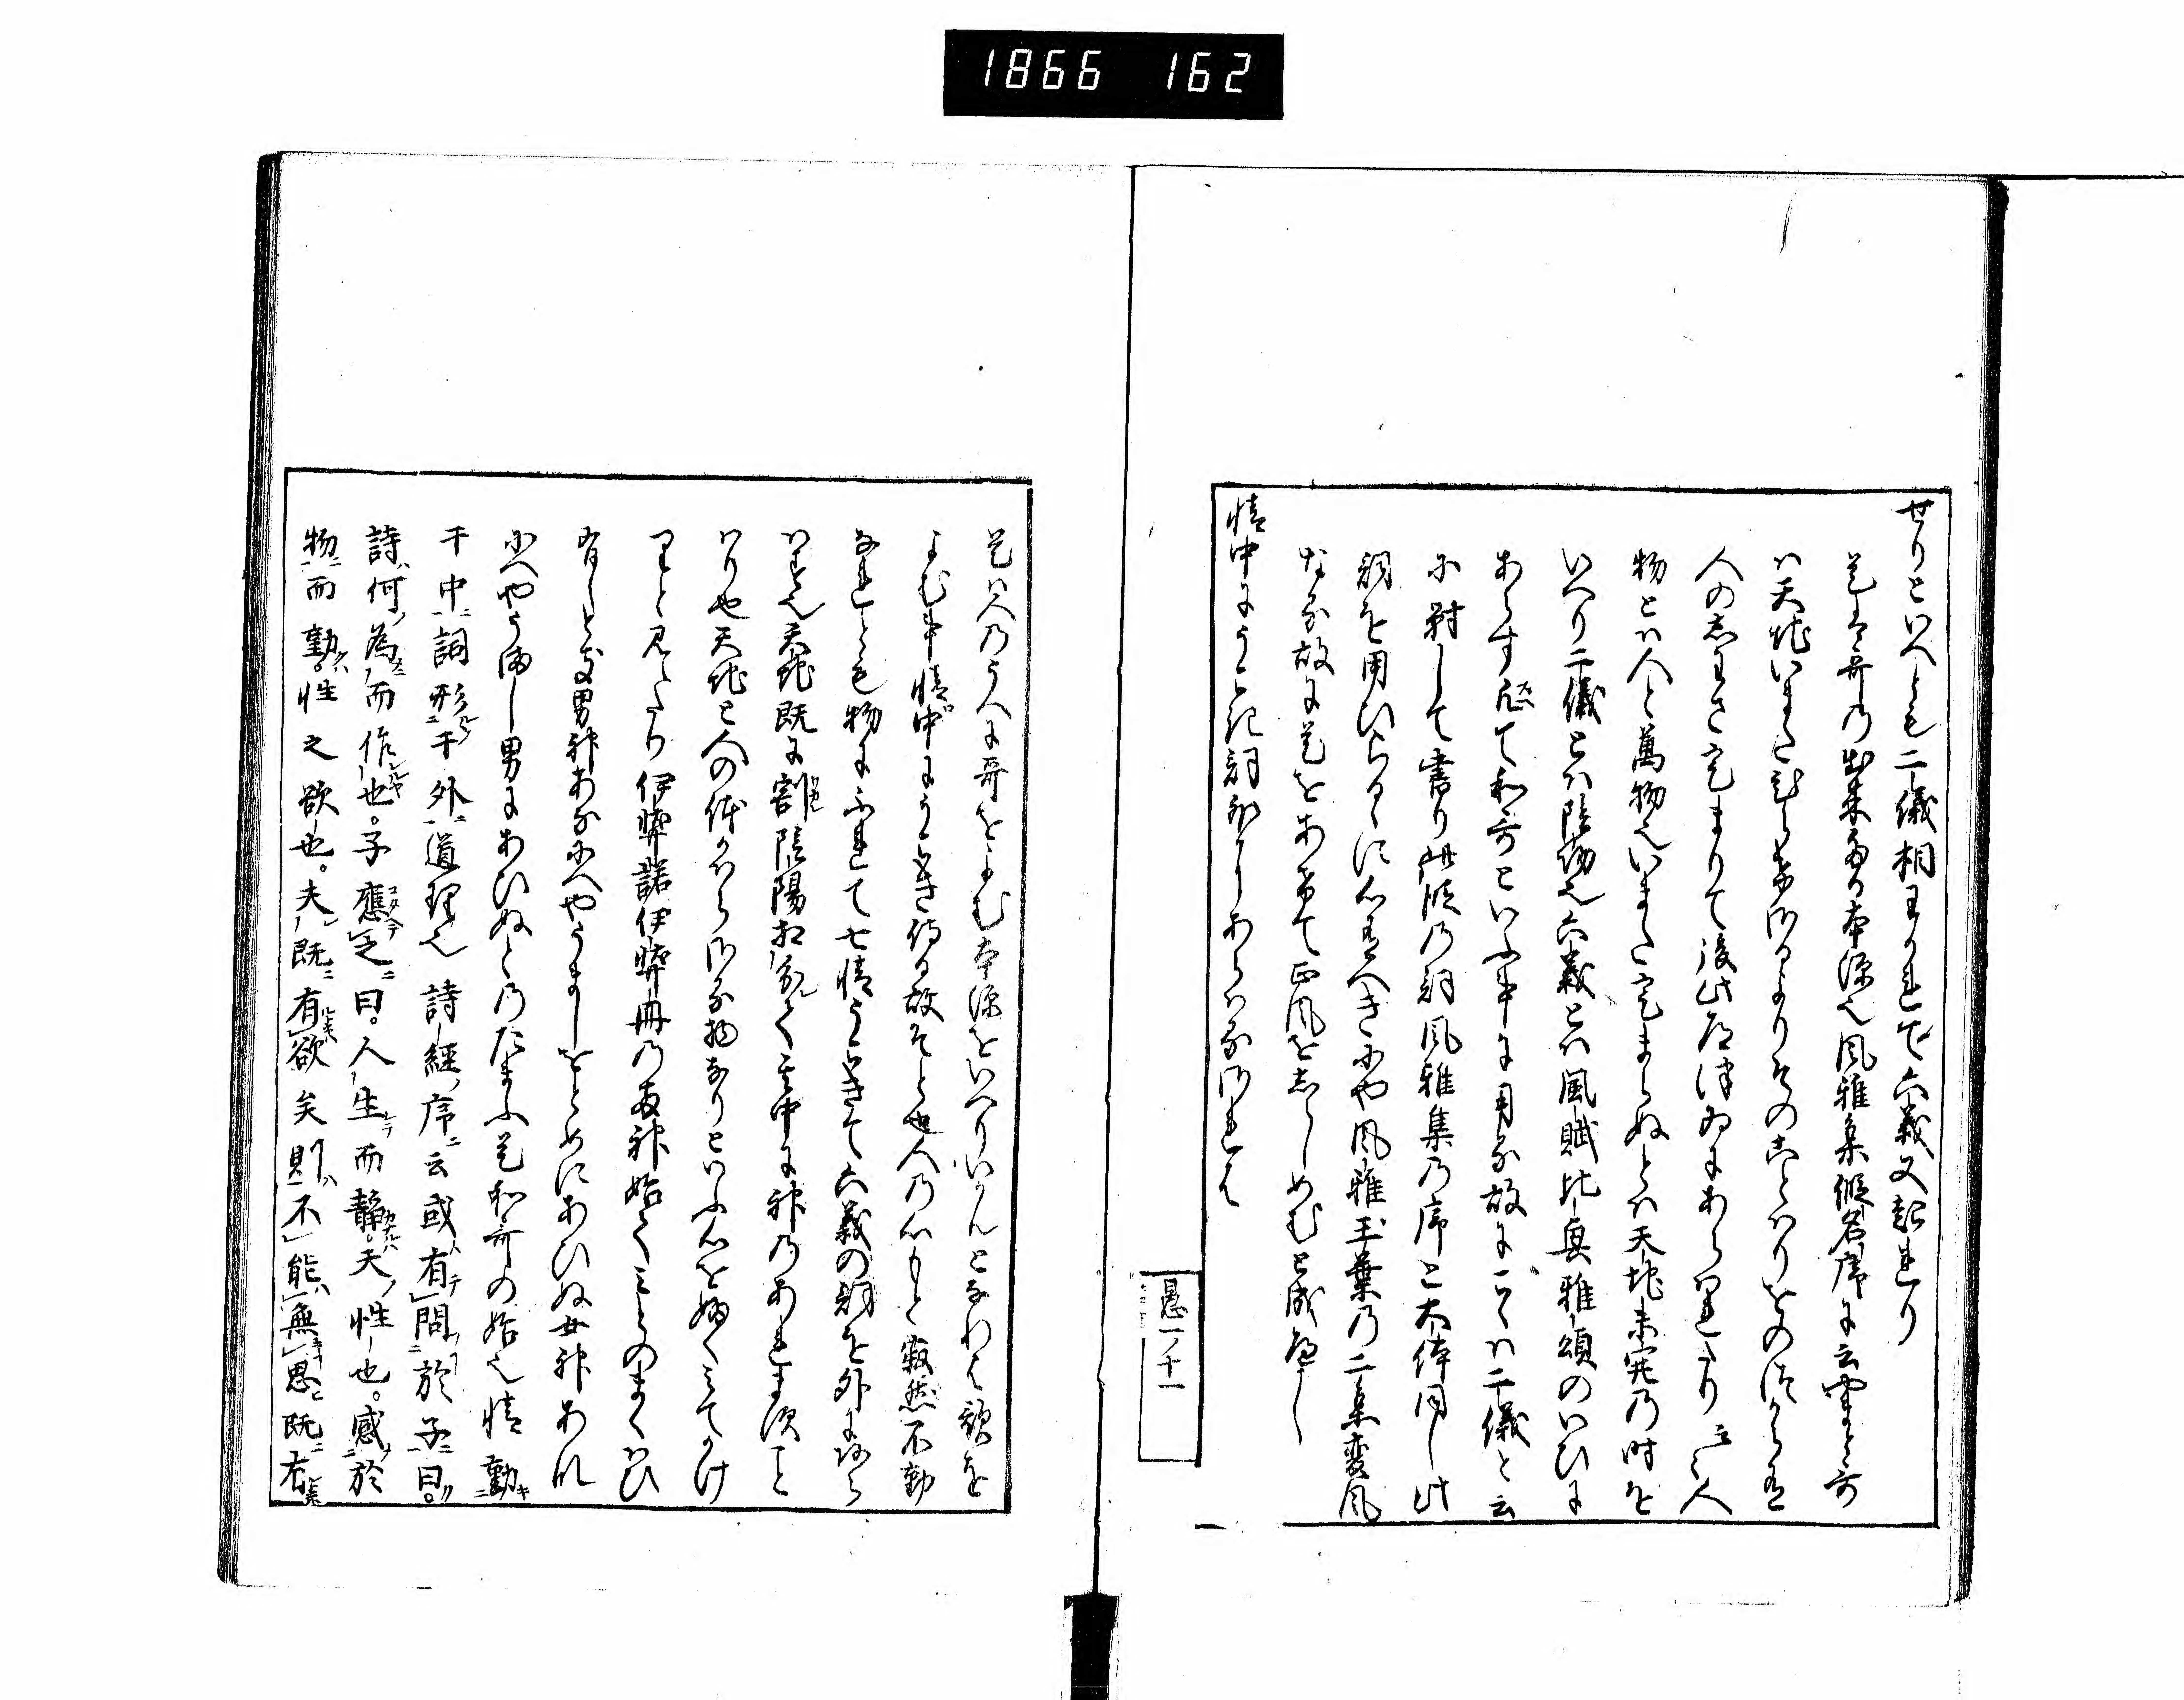 1866 162
せりといへとも二儀相わかれて六義又起れり
是は哥の出来たる本源也風雅集假名序に云やまと哥
は天地いまたひらけさるよりその

ことはりをのつから有
人の志わさ定まりて後此道津ゐにあらはれたり云々人
物とは人と萬物也いまた定まらぬとは天地未定の时を
いへり二儀とは陰陽也六義とは風賦比興雅頌のいひに
あらす
て和哥といふ中に用る故に
は二儀と云
に對して書り此段の詞風雅集の序と大体同し此
詞を用ひらるゝに心有へきにや風雅玉葉の二集変風
なる故に是をあけて正風をしらしめむと成へし
情中にうこき詞外にあらはるけれは
愚一ノ十一
是は人のうへに哥をよむ本源をいへりいかんとなれは歌を
よむ事情中にうこき侍る故そと也人の心もと寂然不動
なれとも物にふれて七情うこきて六義の詞を外にあら
はす也天地既に割陰陽相分て其中に神のあれますこと
はり也天地と人の体かはらさる物なりといふ心をふくみてかけ
りと見えたり伊弉諾伊弉冊の両神始てみとのまくはひ
有しとき男神あなにへやうましをとめにあひぬ女神あれ
にへやうましをとこにあひぬとのたまふ是和哥の始也情動
于中詞形于外道理也詩經序云或有問於予曰。
詩何為而作也。予應之曰。人生而靜。天性也。感於
物而動。性之欲也。夫既有欲矣則不能無思既有